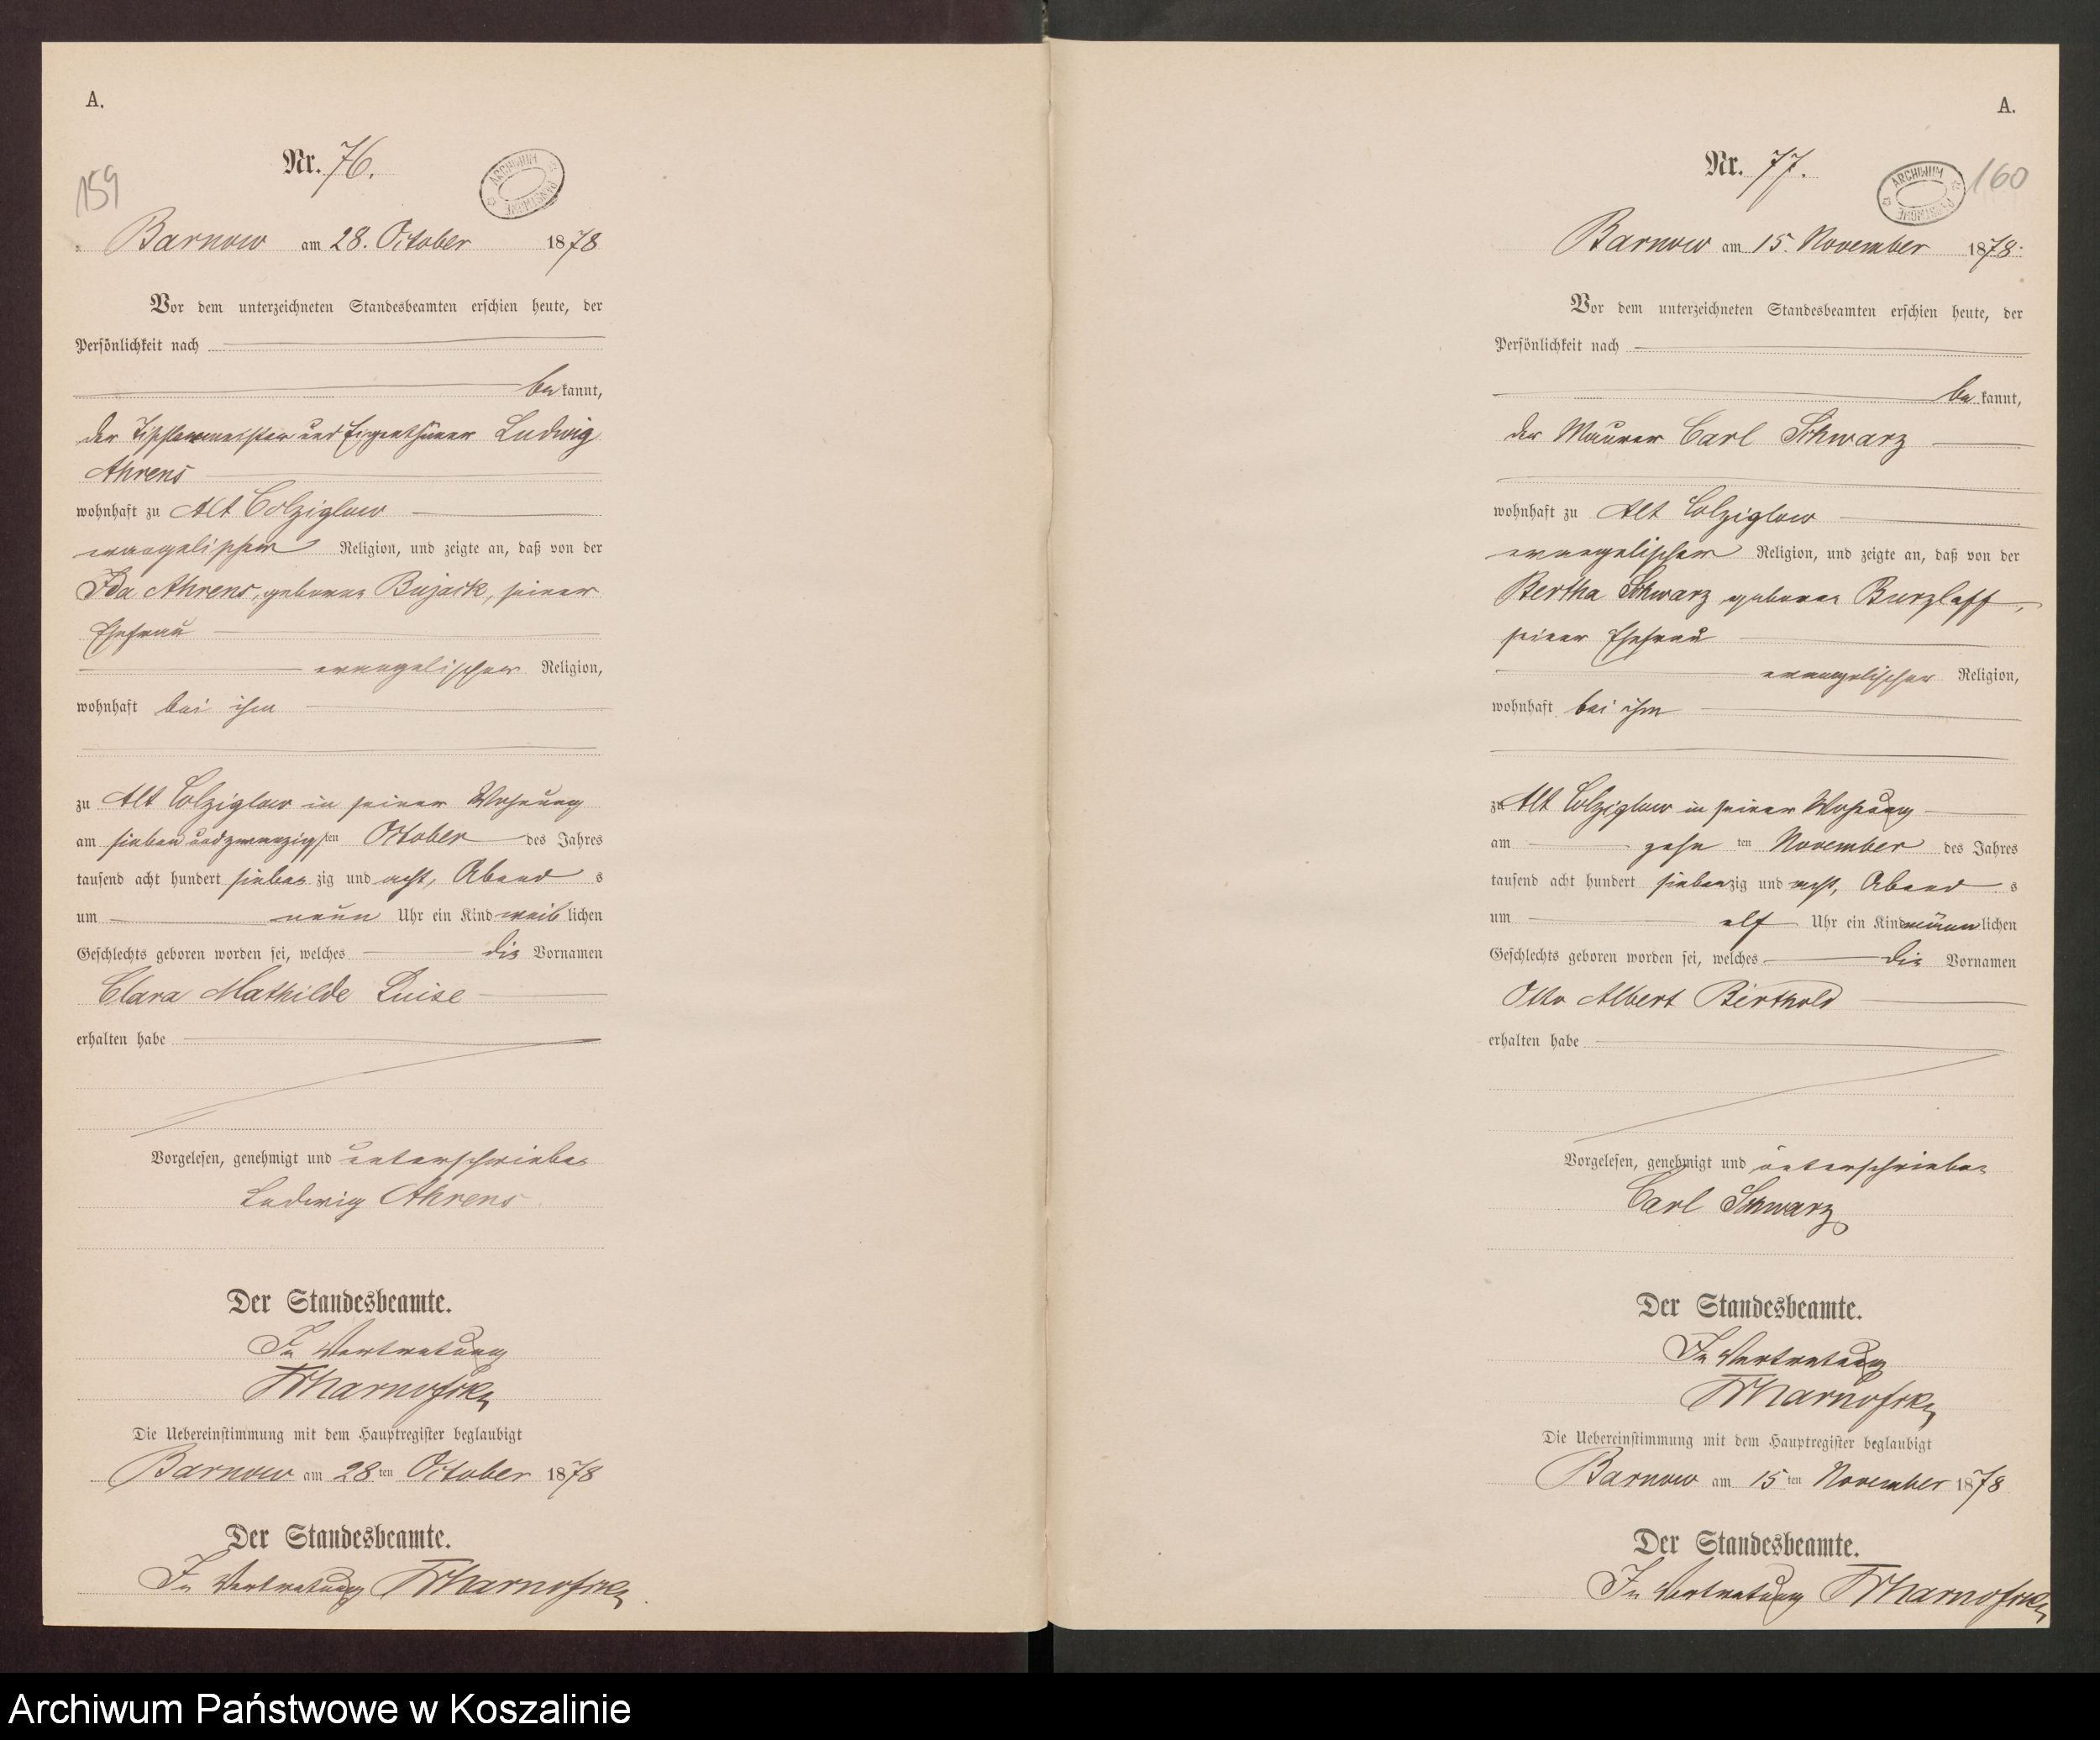 A.
Nr. 76.
159
ARCHIWUM PAŃSTWOWE
Barnow am 28. October 1878
Vor dem unterzeichneten Standesbeamten erschien heute, der
Persönlichkeit nach
bekannt,
der Tischlermeister und Eigenthümer Ludwig
Ahrens
wohnhaft zu Alt Colziglow
evangelischer Religion, und zeigte an, daß von der
Ida Ahrens, geborene Bujack, seiner
Ehefrau
evangelischer Religion,
wohnhaft bei ihm
zu Alt Colziglow in seiner Wohnung
am sieben und zwanzigsten October des Jahres
tausend acht hundert siebenzig und acht, Abends
um neun Uhr ein Kind weiblichen
Geschlechts geboren worden sei, welches die Vornamen
Clara Mathilde Luise
erhalten habe
Vorgelesen, genehmigt und unterschrieben
Ludwig Ahrens.
Der Standesbeamte.
In Vertretung
Die Uebereinstimmung mit dem Hauptregister beglaubigt
Barnow am 28ten October 1878
Der Standesbeamte.
In Vertretung
A.
Nr. 77.
160
ARCHIWUM PAŃSTWOWE
Barnow am 15. November 1878.
Vor dem unterzeichneten Standesbeamten erschien heute, der
Persönlichkeit nach
bekannt,
der Maurer Carl Schwarz
wohnhaft zu Alt Colziglow
evangelischer Religion, und zeigte an, daß von der
Bertha Schwarz geborene Burzlaff,
seiner Ehefrau
evangelischer Religion,
wohnhaft bei ihm
zu Alt Colziglow in seiner Wohnung
am zehnten November des Jahres
tausend acht hundert siebenzig und acht, Abends
um elf Uhr ein Kind männlichen
Geschlechts geboren worden sei, welches die Vornamen
Otto Albert Berthold
erhalten habe
Vorgelesen, genehmigt und unterschrieben
Carl Schwarz
Der Standesbeamte.
In Vertretung
Die Uebereinstimmung mit dem Hauptregister beglaubigt
Barnow am 15ten November 1878
Der Standesbeamte.
In Vertretung
Archiwum Państwowe w Koszalinie